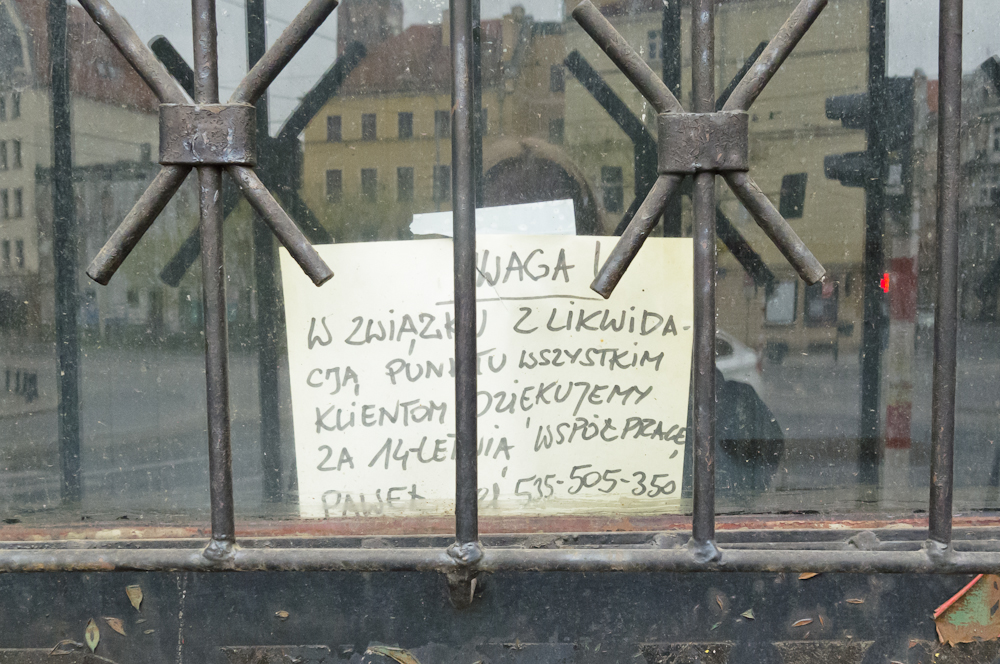 UWAGA !
W ZWIĄZKU Z LIKWIDA-
CJĄ PUNKTU WSZYSTKIM
KLIENTOM DZIEKUJEMY
ZA 14-LETNIĄ WSPÓŁPRACĘ
PAWEŁ 535-505-350